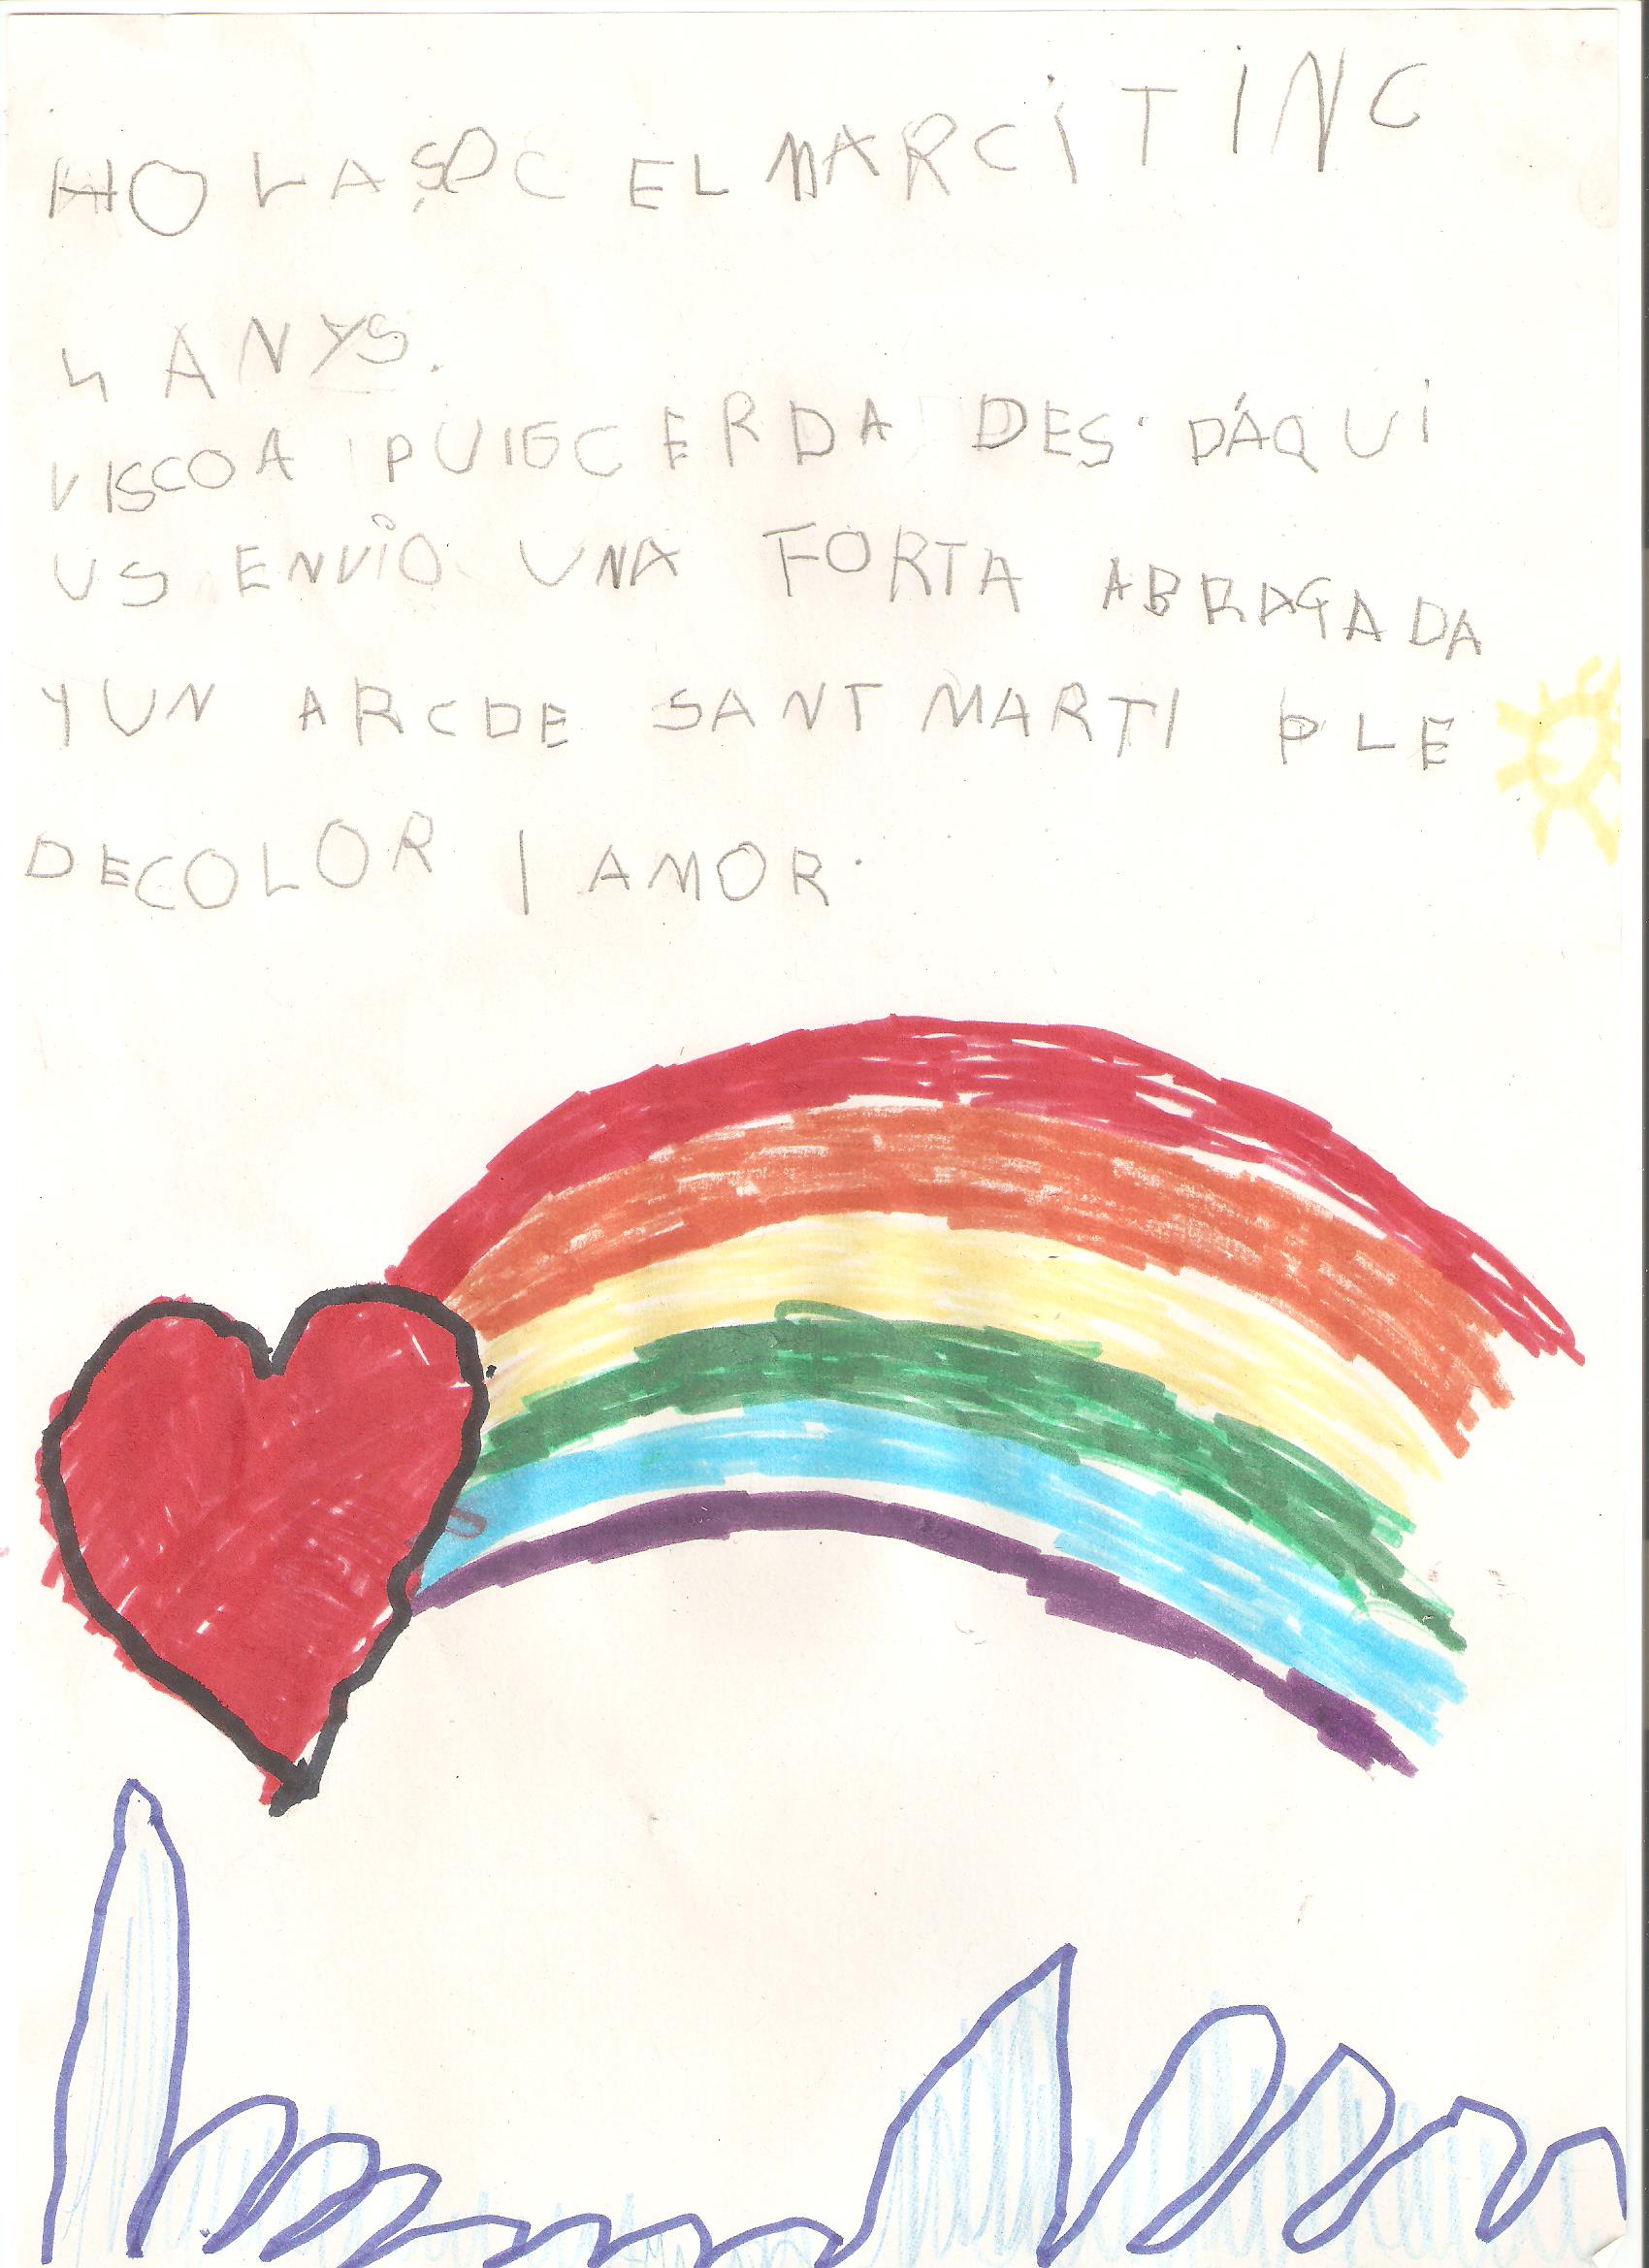 HOLA SOC EL MARC I TINC
4 ANYS.
VISC A PUIGCERDA DES D'AQUI
US ENVIO UNA FORTA ABRAÇADA
Y UN ARC DE SANT MARTI PLE
DE COLOR I AMOR.